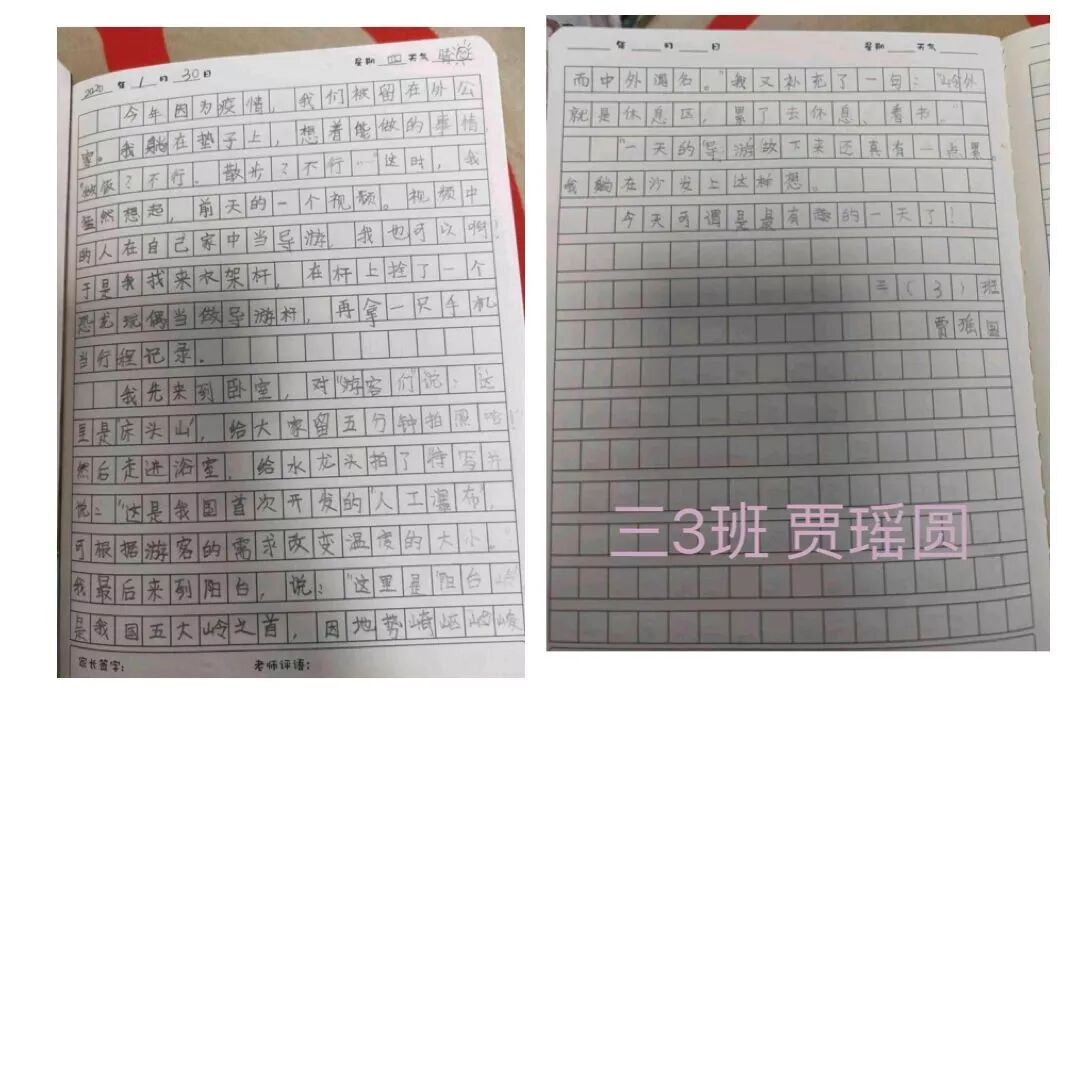 2020 年 1 月 30 日 星期 四 天气 晴
今年因为疫情，我们被留在外公
家。我躺在垫子上，想着能做的事情，
"做饭？不行。散步？不行……"这时，我
猛然想起，前天的一个视频。视频中
的人在自己家中当导游，我也可以啊！
于是我找来衣架杆，在杆上拴了一个
恐龙玩偶当做导游杆，再拿一只手机
当行程记录。
我先来到卧室，对"游客们"说："这
里是床头山，给大家留五分钟拍照哈！"
然后走进浴室，给水龙头拍了特写并
说："这是我国首次开发的"人工瀑布"，
可根据游客的需求改变温度的大小。"
我最后来到阳台，说："这里是"阳台岭"
是我国五大岭之首，因地势崎岖险峻
家长签字： 老师评语：
年 月 日 星期 天气
而中外闻名。"我又补充了一句："岭外
就是休息区，累了去休息、看书。"
"一天的导游做下来还真有一点累。
我躺在沙发上这样想。
今天可谓是最有趣的一天了！
三（3）班
贾瑶圆
三3班 贾瑶圆